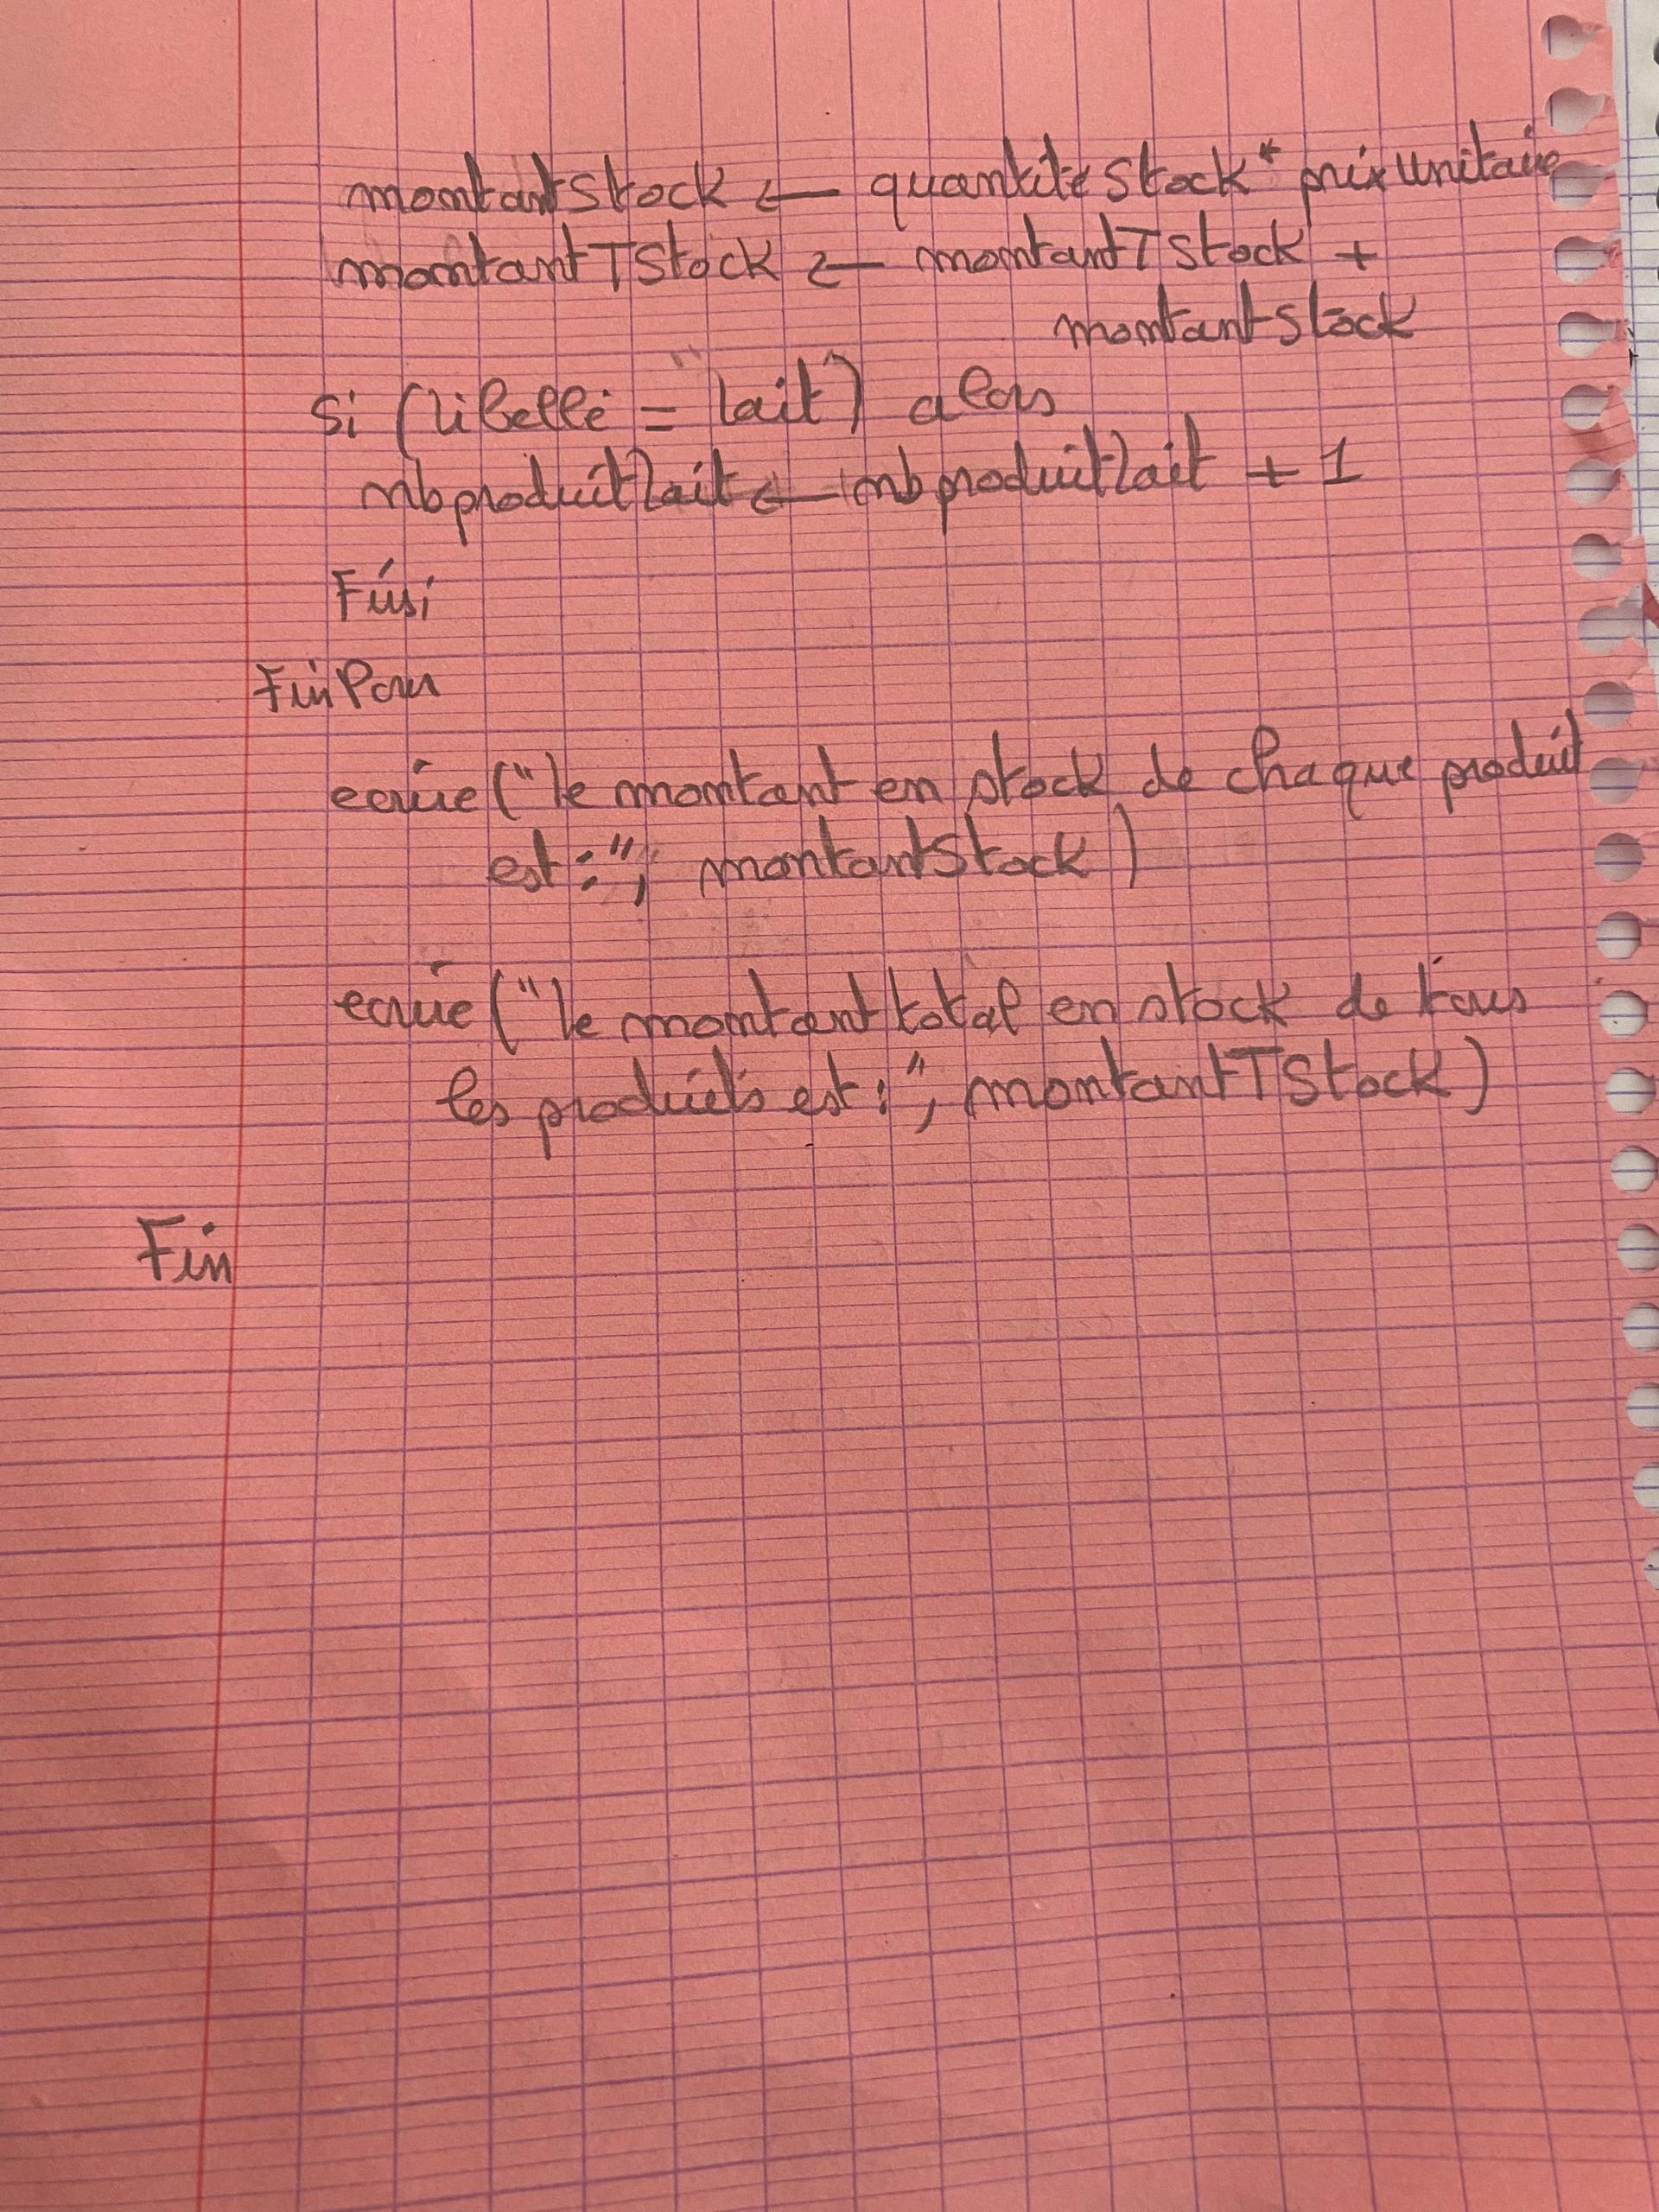 montantStock ← quantitéStock * prixunitaire
montantTStock ← montantTStock +
montantstock
Si (libellé = "lait") alors
nbproduitlait ← nbproduitlait + 1
Finsi
FinPour
ecrire ("le montant en stock de chaque produit
est :", montantStock)
ecrire ("le montant total en stock de tous
les produits est :", montantTStock)
Fin